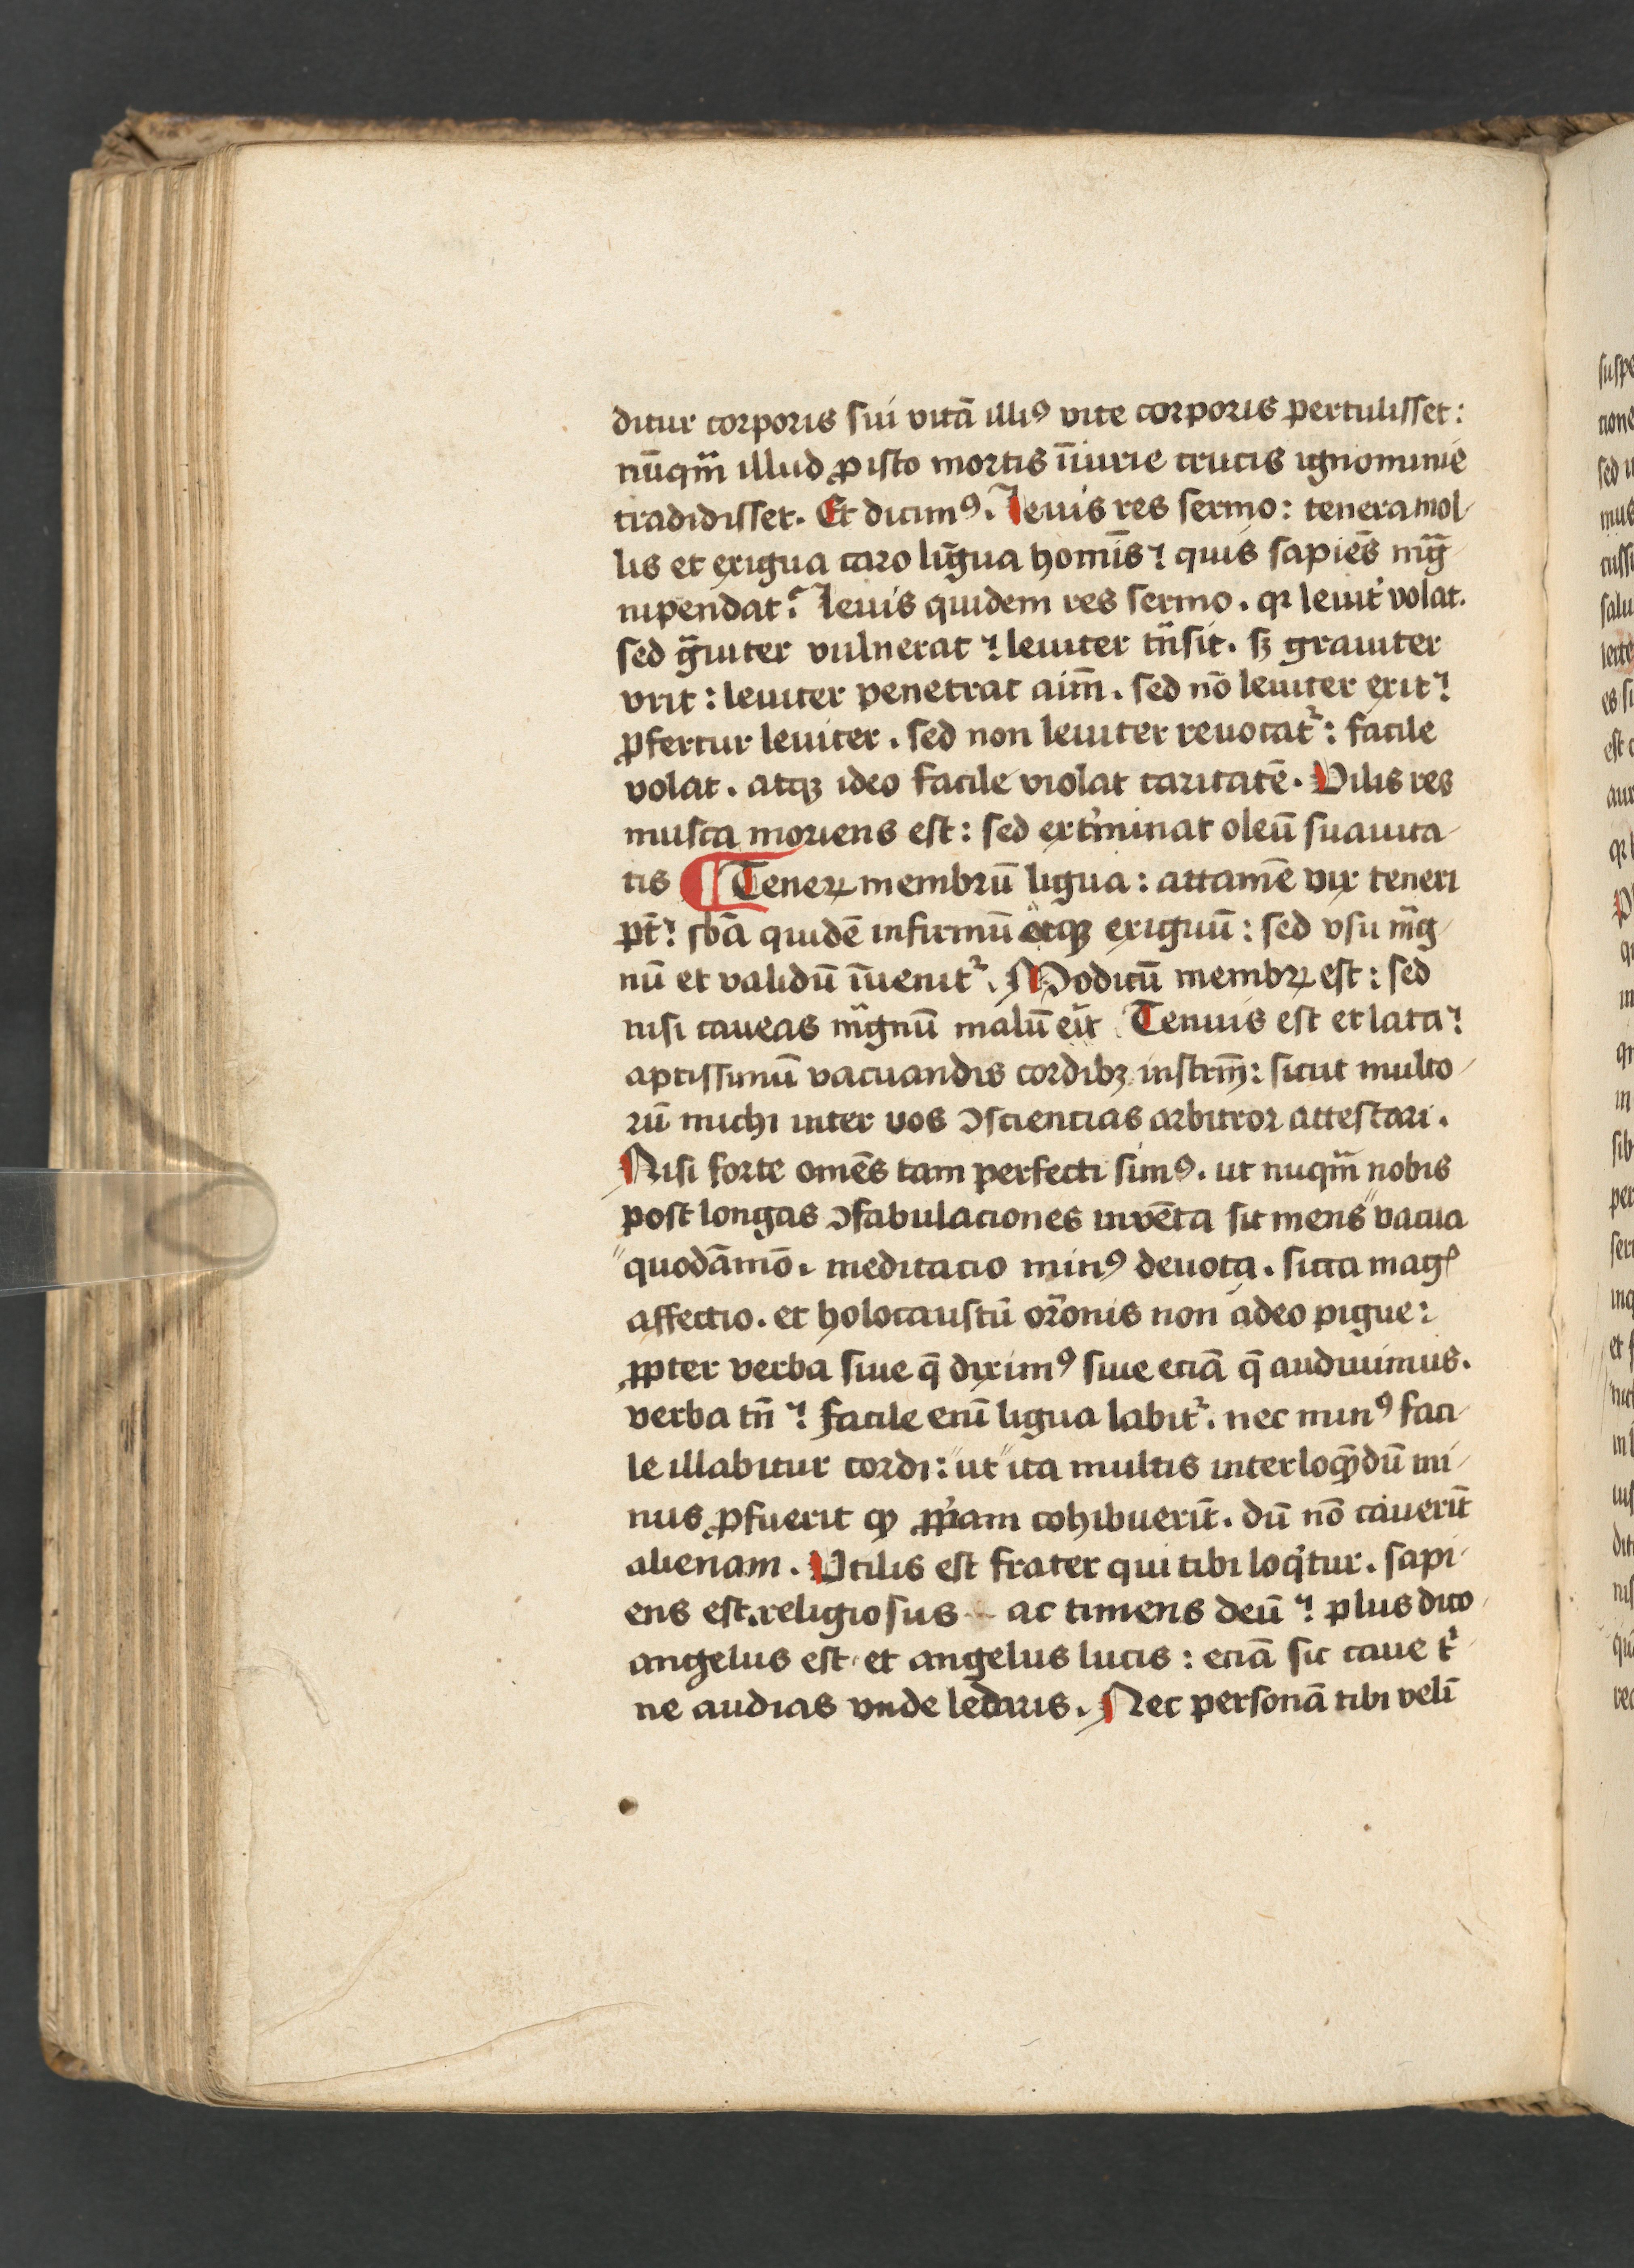 ditur corporis sui vitā illiꝰ vite corporis pertulisset:
nūqm̄ illud ꝓ isto mortis īiurie crucis ignominie
tradidisset. Et dicimꝰ. Leuis res sermo: tenera mol-
lis et exigua caro līgua homīs? quis sapiēs mḡ-
nipendat? Leuis quidem res sermo. qꝛ leuit̉ volat.
sed gͣuiter vulnerat? leuiter tn̄sit. sꝫ grauiter
vrit: leuiter penetrat aim̄. sed nō leuiter exit?
ꝓfertur leuiter. sed non leuiter reuocatᷣ: facile
volat. atqꝫ ideo facile violat caritatē. Vilis res
musca moriens est: sed ext̉minat oleū suauita-
tis ¶ Teneꝝ membrū ligua: attamē vix teneri
pt̄? sbā quidē infirmū atqꝫ exiguū: sed vsu mͣg-
nū et validū īuenitᷣ. Modicū membꝝ est: sed
nisi caueas mͣgnū malū eīt Tenuis est et lata?
aptissimū vacuandis cordibꝫ instrm̄: sicut multo-
rū michi inter vos ꝯsciencias arbitror attestari.
Nisi forte omēs tam perfecti simꝰ. ut nuqm̄ nobis
post longas ꝯfabulaciones invēta sit mens" vacua
"quodāmō. meditacio minꝰ deuota. sicca magꝭ
affectio. et holocaustū or̄onis non adeo pigue:
ꝓpter verba siue q̄ diximꝰ siue eciā q̄ audiuimus.
verba tn̄? facile enī ligua labitᷣ. nec minꝰ faci-
le illabitur cordi: "ut" ita multis interloqn̄dū mi-
nus ꝓfuerit ꝙ ꝓp̉am cohibuerīt. dū nō cauerīt
alienam. Vtilis est frater qui tibi loqͥtur. sapi-
ens est. religiosus ac timens deū? plus dico
angelus est et angelus lucis: eciā sic caue t̉
ne audias vnde ledaris. Nec personā tibi velī